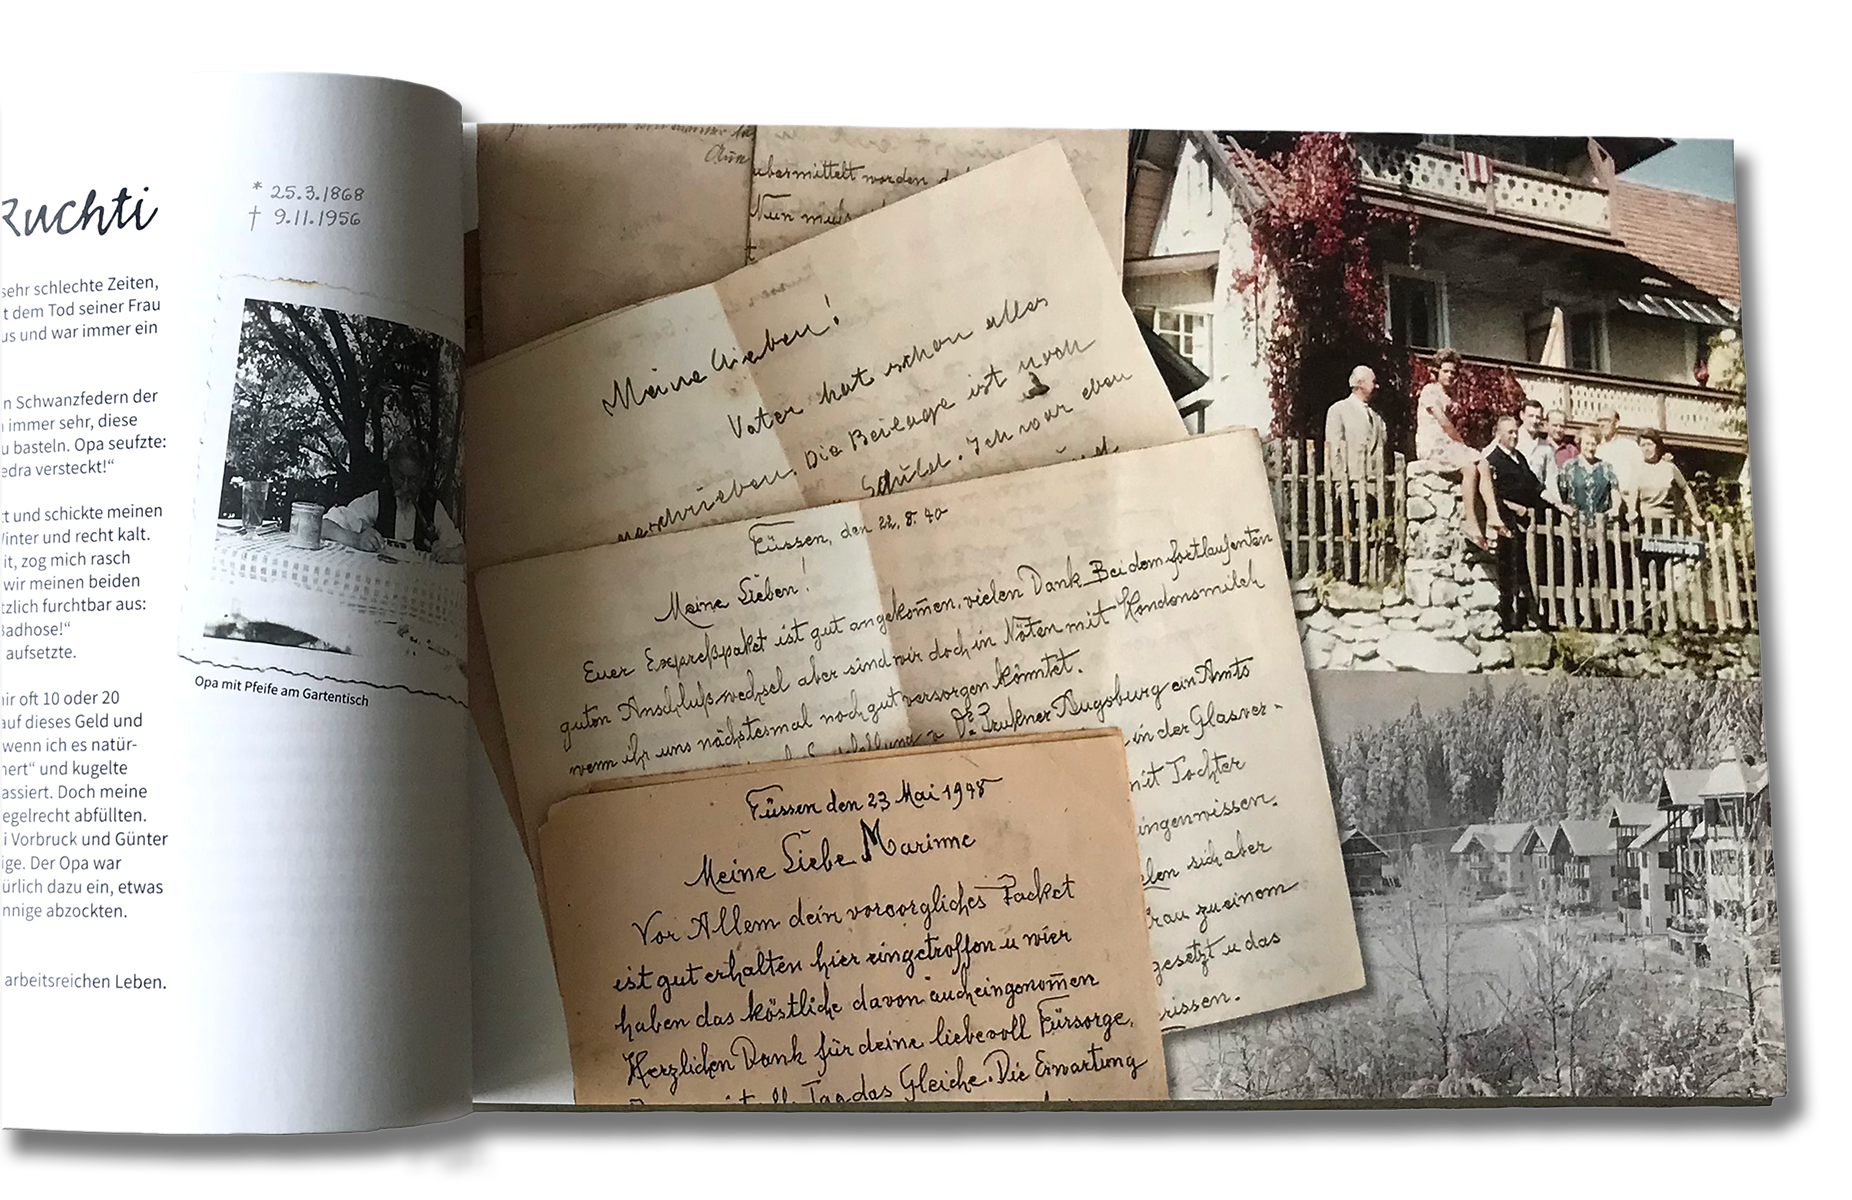 Ruchti
* 25.3.1868
† 9.11.1956
sehr schlechte Zeiten,
t dem Tod seiner Frau
us und war immer ein
n Schwanzfedern der
immer sehr, diese
u basteln. Opa seufzte:
edra versteckt!“
tt und schickte meinen
Winter und recht kalt.
it, zog mich rasch
wir meinen beiden
tzlich furchtbar aus:
Badhose!“
aufsetzte.
ir oft 10 oder 20
auf dieses Geld und
wenn ich es natür-
nert“ und kugelte
assiert. Doch meine
egelrecht abfüllten.
i Vorbruck und Günter
ige. Der Opa war
ürlich dazu ein, etwas
nnige abzockten.
arbeitsreichen Leben.
Opa mit Pfeife am Gartentisch
übermittelt worden
Nun muss
Meine Lieben!
Vater hat schon alles
geschrieben. Die Beilage ist noch
Schüld. Ich war eben
Füssen, den 22.8.40
Meine Lieben!
Euer Expreßpaket ist gut angekom̄en, vielen Dank. Bei dem fortlaufenten
guten Anschlußwechsel aber sind wir doch in Nöten mit Kondonsmilch
wenn ihr uns nächstesmal noch gut versorgen könntet.
Augsburg ein Amts
in der Glasver-
mit Tochter
ingenwissen.
elen sich aber
rau zu einem
gesetzt u das
rissen.
Füssen den 23 Mai 1948
Meine Liebe Marinne
Vor Allem dein vorsorgliches Packet
ist gut erhalten hier eingetroffen u wier
haben das köstliche davon auch eingenom̄en
Herzlichen Dank für deine liebevoll Fürsorge.
Tag das Gleiche. Die Erwartung